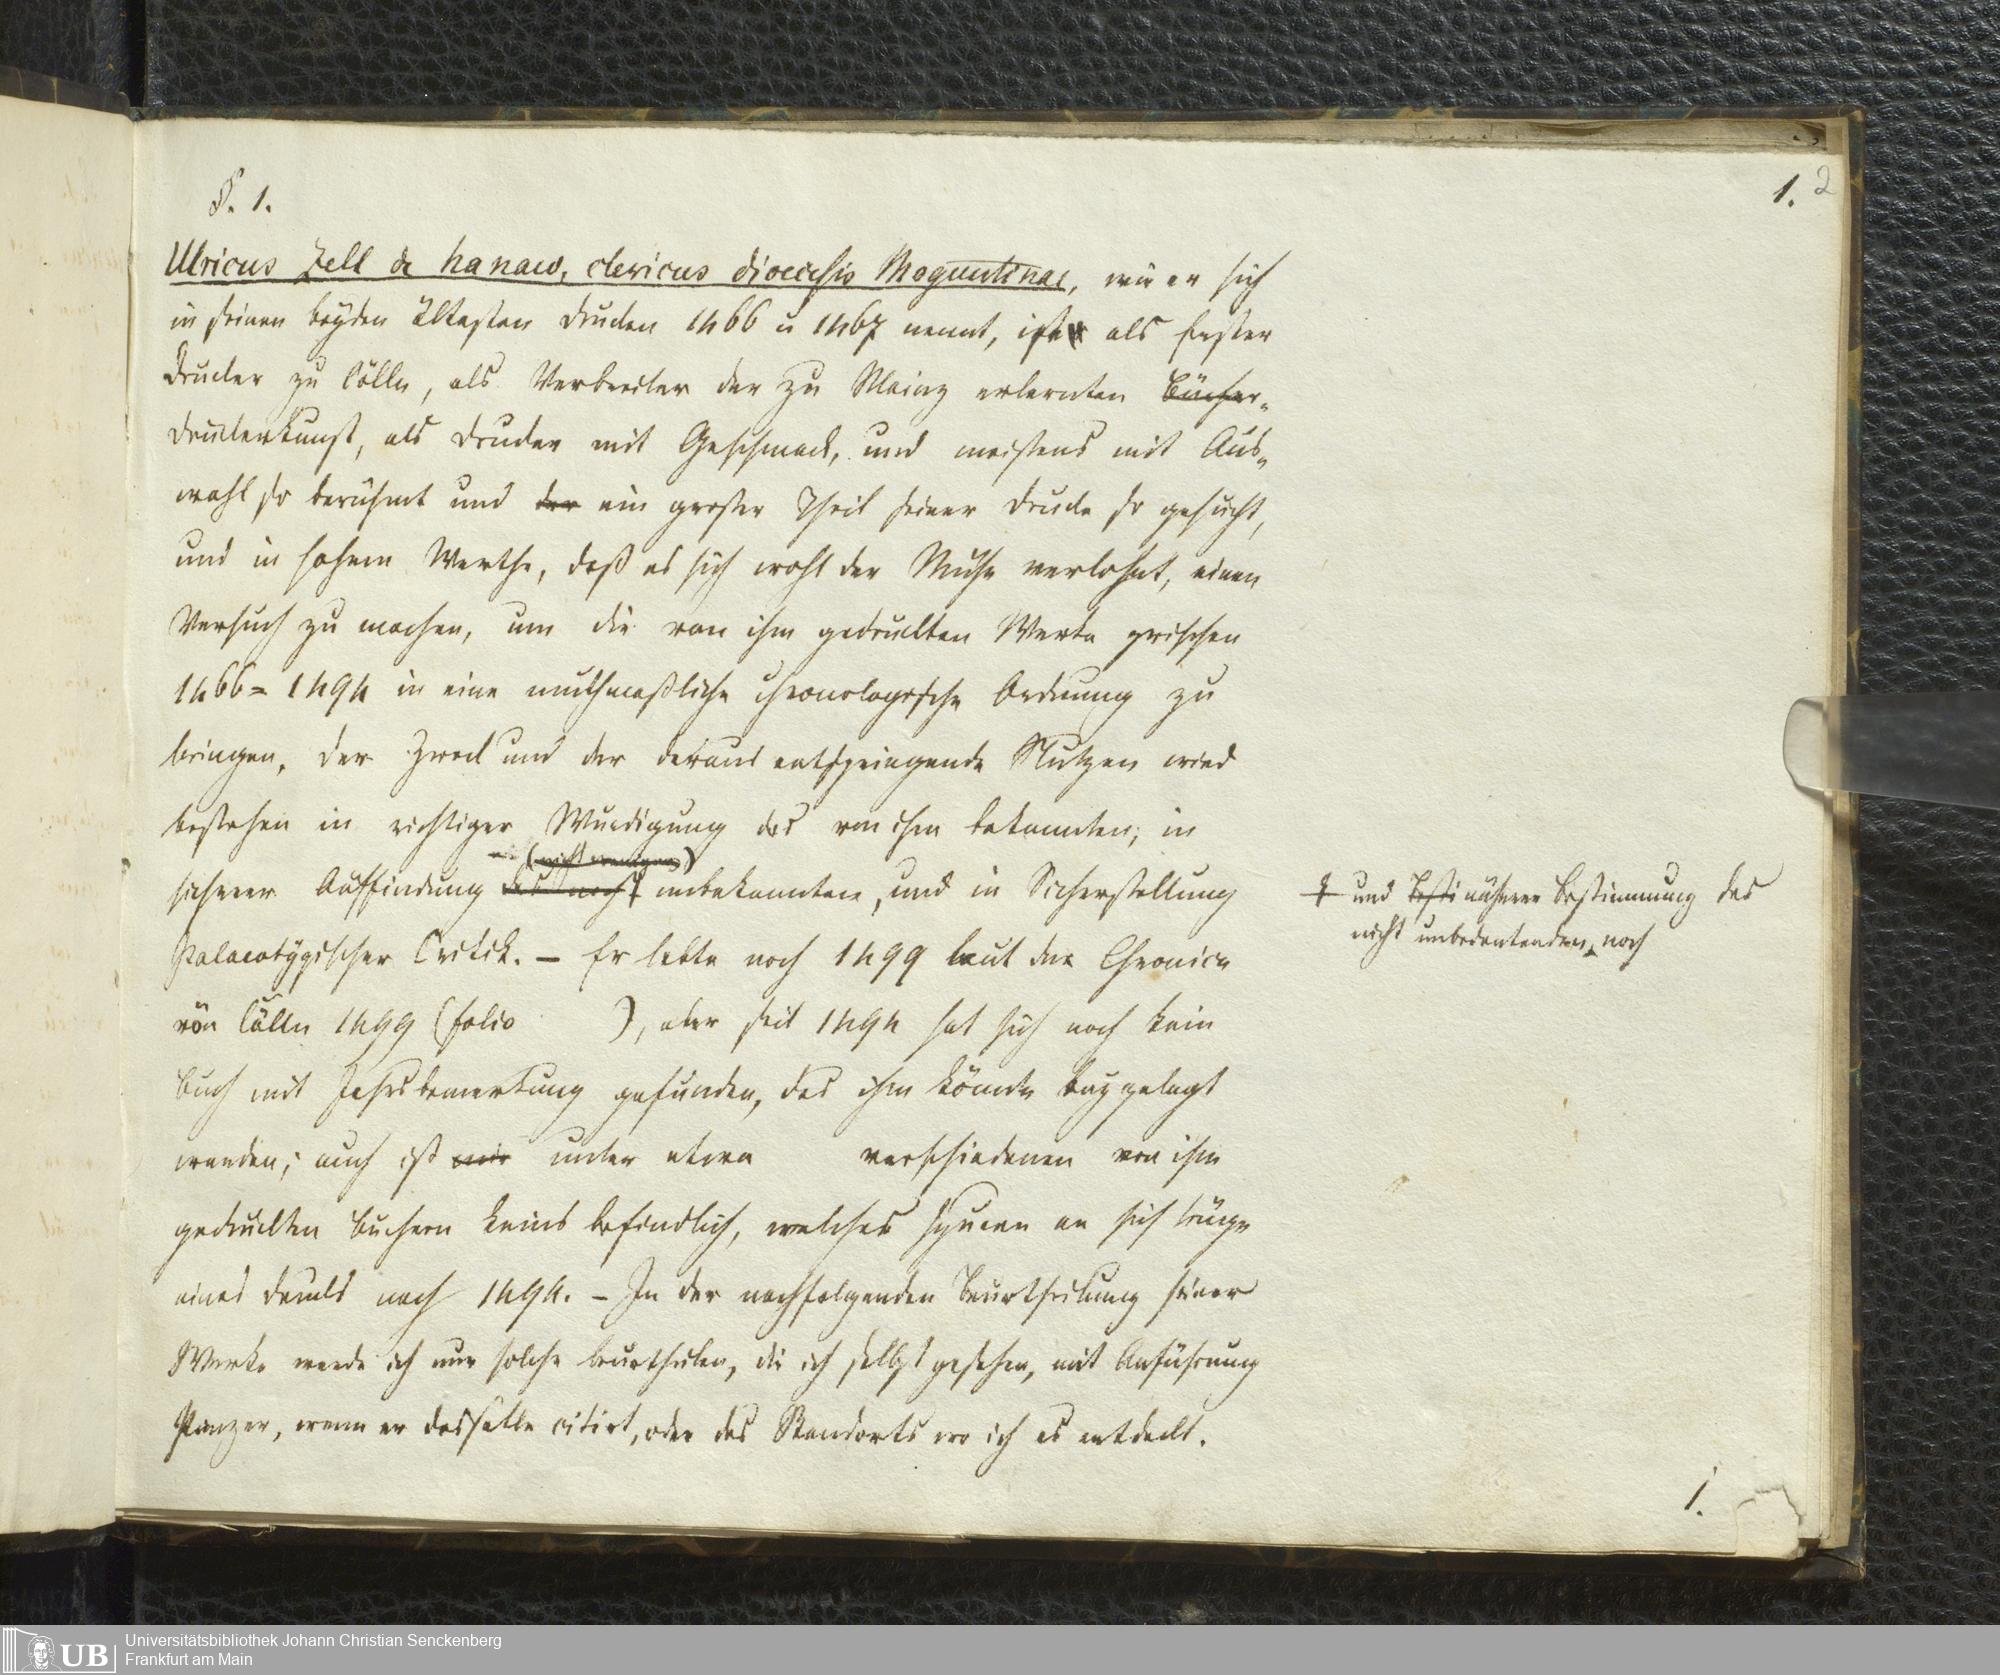 §. 1.
1. 2
Ulricus Zell de hanaw, clericus dioecesis Moguntinae, wie er sich
in seinen beyden ältesten Drucken 1466 u 1467 nennt, ist als erster
Drucker zu Cölln, als Verbreiter der zu Mainz erlernten Bücher-
druckerkunst, als Drucker mit Geschmack, und meistens mit Aus-
wahl so berühmt und der ein großer Theil seiner Drucke so gesucht,
und in hohem Werthe, daß es sich wohl der Mühe verlohnt, einen
Versuch zu machen, um die von ihm gedruckten Werke zwischen
1466=1494 in eine muthmaßliche chronologische Ordnung zu
bringen. Der Zweck und der daraus entspringende Nutzen wird
bestehen in richtiger Würdigung des von ihm bekannten; in
(nicht wenigen)
sicherer Auffindung des noch unbekannten, und in Sicherstellung
und Besti näherer Bestimmung des
nicht unbedeutenden, noch
Palaeotypischer Critik. – Er lebte noch 1499 laut der Chronica
von Cölln 1499 (folio ), aber seit 1494 hat sich noch kein
Buch mit Jahrsbemerkung gefunden, das ihm könnte beygelegt
werden; auch ist mir unter etwa verschiedenen von ihm
gedruckten Büchern keins befindlich, welches Spuren an sich trüge
eines Drucks nach 1494. – In der nachfolgenden Beurtheilung seiner
Werke werde ich nur solche beurtheilen, die ich selbst gesehen, mit Anführung
Panzer, wenn er dasselbe citirt, oder des Standorts wo ich es entdeckt.
1.
Universitätsbibliothek Johann Christian Senckenberg
Frankfurt am Main
UB